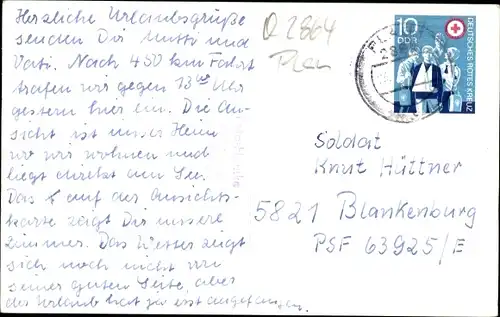 Herzliche Urlaubsgrüße
senden Dir Mutti und
Vati. Nach 450 km Fahrt
trafen wir gegen 13⁰⁰ Uhr
gestern hier ein. Die An-
sicht ist unser Heim
wo wir wohnen und
liegt direkt am See.
Das f auf der Ansichts-
karte zeigt Dir unsere
Zimmer. Das Wetter zeigt
sich noch nicht von
seiner guten Seite, aber
der Urlaub hat ja erst angefangen.
Q 2864
10
DDR
DEUTSCHES ROTES KREUZ
Soldat
Knut Hüttner
5821 Blankenburg
PSF 63925/E